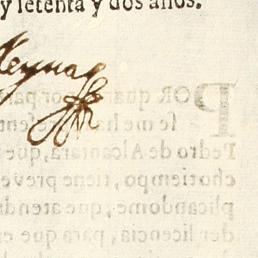 y setenta y dos años.
Reyna
POR qua por par
se me ha
Pedro de Alcantara, que
cho tiempo, tiene preve
plicandome, que atend
der licencia, para que e